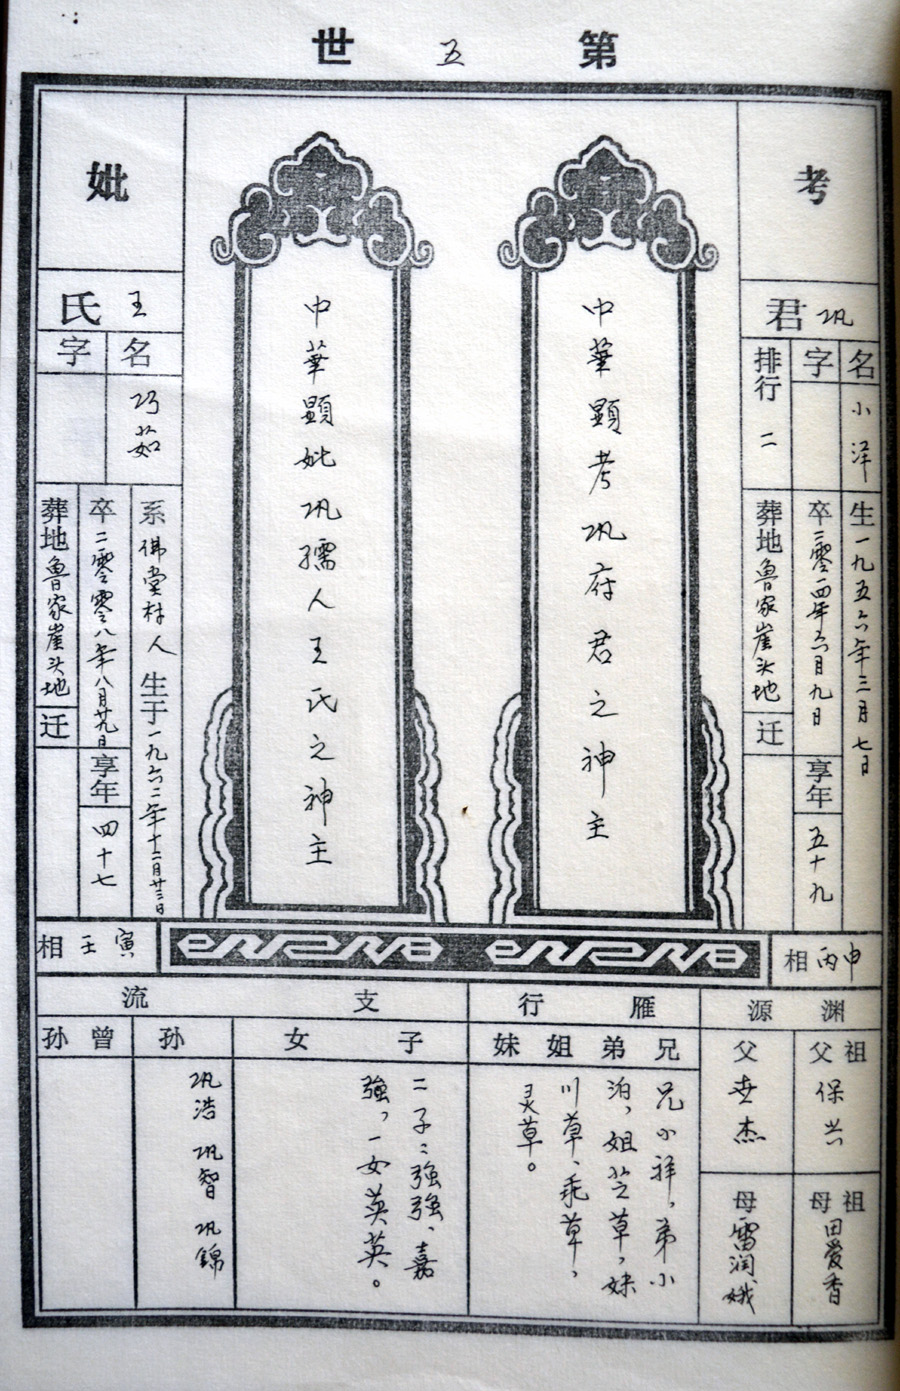 第五世
考
君巩
名小泽
字
排行二
生一九五六年三月七日
卒二零一四年六月九日
享年五十九
葬地鲁家崖头地
迁
相丙申
中華顯考巩府君之神主
中華顯妣巩孺人王氏之神主
妣
氏王
名巧茹
字
系佛堂村人生于一九六二年十二月廿三日
卒二零零八年八月廿九日
享年四十七
葬地鲁家崖头地
迁
相壬寅
渊源
祖父保兴
父世杰
祖母田爱香
母雷润娥
雁行
兄弟姐妹
兄小祥，弟小
泊，姐芝草，妹
川草、乖草，
灵草。
支流
子女
二子：強強、嘉
強，一女英英。
孙
巩浩 巩智 巩錦
曾孙